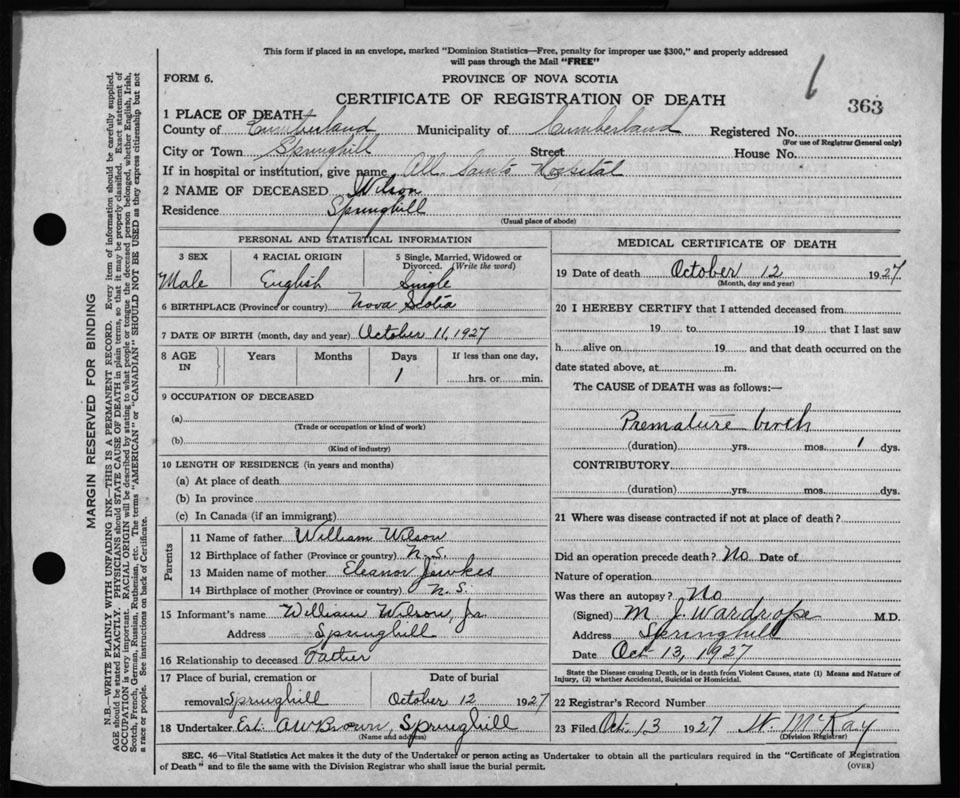 This form if placed in an envelope, marked "Dominion Statistics—Free, penalty for improper use $300," and properly addressed
will pass through the Mail "FREE"
FORM 6.
PROVINCE OF NOVA SCOTIA
6
363
CERTIFICATE OF REGISTRATION OF DEATH
1 PLACE OF DEATH
County of Cumberland Municipality of Cumberland Registered No.
(For use of Registrar General only)
City or Town Springhill Street House No.
If in hospital or institution, give name All Saints Hospital
2 NAME OF DECEASED Wilson
Residence Springhill
(Usual place of abode)
PERSONAL AND STATISTICAL INFORMATION
3 SEX 4 RACIAL ORIGIN 5 Single, Married, Widowed or
Divorced. (Write the word)
Male English Single
6 BIRTHPLACE (Province or country) Nova Scotia
7 DATE OF BIRTH (month, day and year) October 11, 1927
8 AGE IN Years Months Days If less than one day,
1 hrs. or min.
9 OCCUPATION OF DECEASED
(a)
(Trade or occupation or kind of work)
(b)
(Kind of industry)
10 LENGTH OF RESIDENCE (in years and months)
(a) At place of death
(b) In province
(c) In Canada (if an immigrant)
Parents
11 Name of father William Wilson
12 Birthplace of father (Province or country) N.S.
13 Maiden name of mother Eleanor Jewkes
14 Birthplace of mother (Province or country) N.S.
15 Informant's name William Wilson, Jr.
Address Springhill
16 Relationship to deceased Father
17 Place of burial, cremation or Date of burial
removal Springhill October 12 1927
18 Undertaker Est. A W Brown, Springhill
(Name and address)
MEDICAL CERTIFICATE OF DEATH
19 Date of death October 12 1927
(Month, day and year)
20 I HEREBY CERTIFY that I attended deceased from
19 to 19 that I last saw
h alive on 19 and that death occurred on the
date stated above, at m.
The CAUSE of DEATH was as follows:—
Premature birth
(duration) yrs. mos. 1 dys.
CONTRIBUTORY
(duration) yrs. mos. dys.
21 Where was disease contracted if not at place of death?
Did an operation precede death? No Date of
Nature of operation
Was there an autopsy? No
(Signed) M. J. Wardrope M.D.
Address Springhill
Date Oct 13, 1927
State the Disease causing Death, or in death from Violent Causes, state (1) Means and Nature of
Injury, (2) whether Accidental, Suicidal or Homicidal.
22 Registrar's Record Number
23 Filed Oct. 13 1927 W. McKay
(Division Registrar)
SEC. 46—Vital Statistics Act makes it the duty of the Undertaker or person acting as Undertaker to obtain all the particulars required in the "Certificate of Registration
of Death" and to file the same with the Division Registrar who shall issue the burial permit.
(OVER)
MARGIN RESERVED FOR BINDING
N.B.—WRITE PLAINLY WITH UNFADING INK—THIS IS A PERMANENT RECORD. Every item of information should be carefully supplied.
AGE should be stated EXACTLY. PHYSICIANS should STATE CAUSE OF DEATH in plain terms, so that it may be properly classified. Exact statement of
OCCUPATION is very important. RACIAL ORIGIN will be described by stating to what people or tongue the deceased person belonged, whether English, Irish,
Scotch, French, German, Russian, Ruthenian, etc. The terms "AMERICAN" or "CANADIAN" SHOULD NOT BE USED as they express citizenship but not
a race or people. See instructions on back of Certificate.